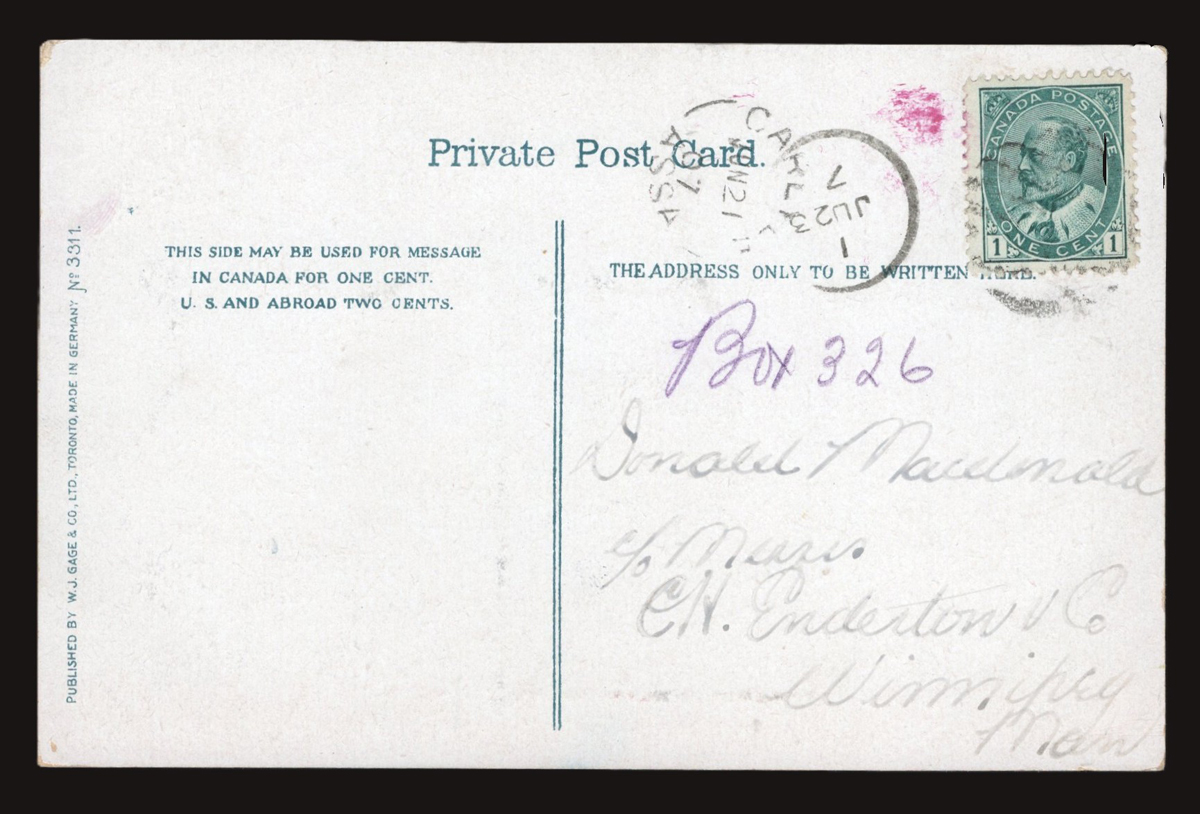 Private Post Card.
CANADA POSTAGE
ONE CENT
1 1
CARLY
JUN 21
07
ASSA
1
JU 23
7
THIS SIDE MAY BE USED FOR MESSAGE
IN CANADA FOR ONE CENT.
U. S. AND ABROAD TWO CENTS.
THE ADDRESS ONLY TO BE WRITTEN HERE.
Box 326
Donald Macdonald
c/o Messrs
C.H. Enderton & Co
Winnipeg
Man
PUBLISHED BY W. J. GAGE & CO., LTD., TORONTO, MADE IN GERMANY Nº 3311.